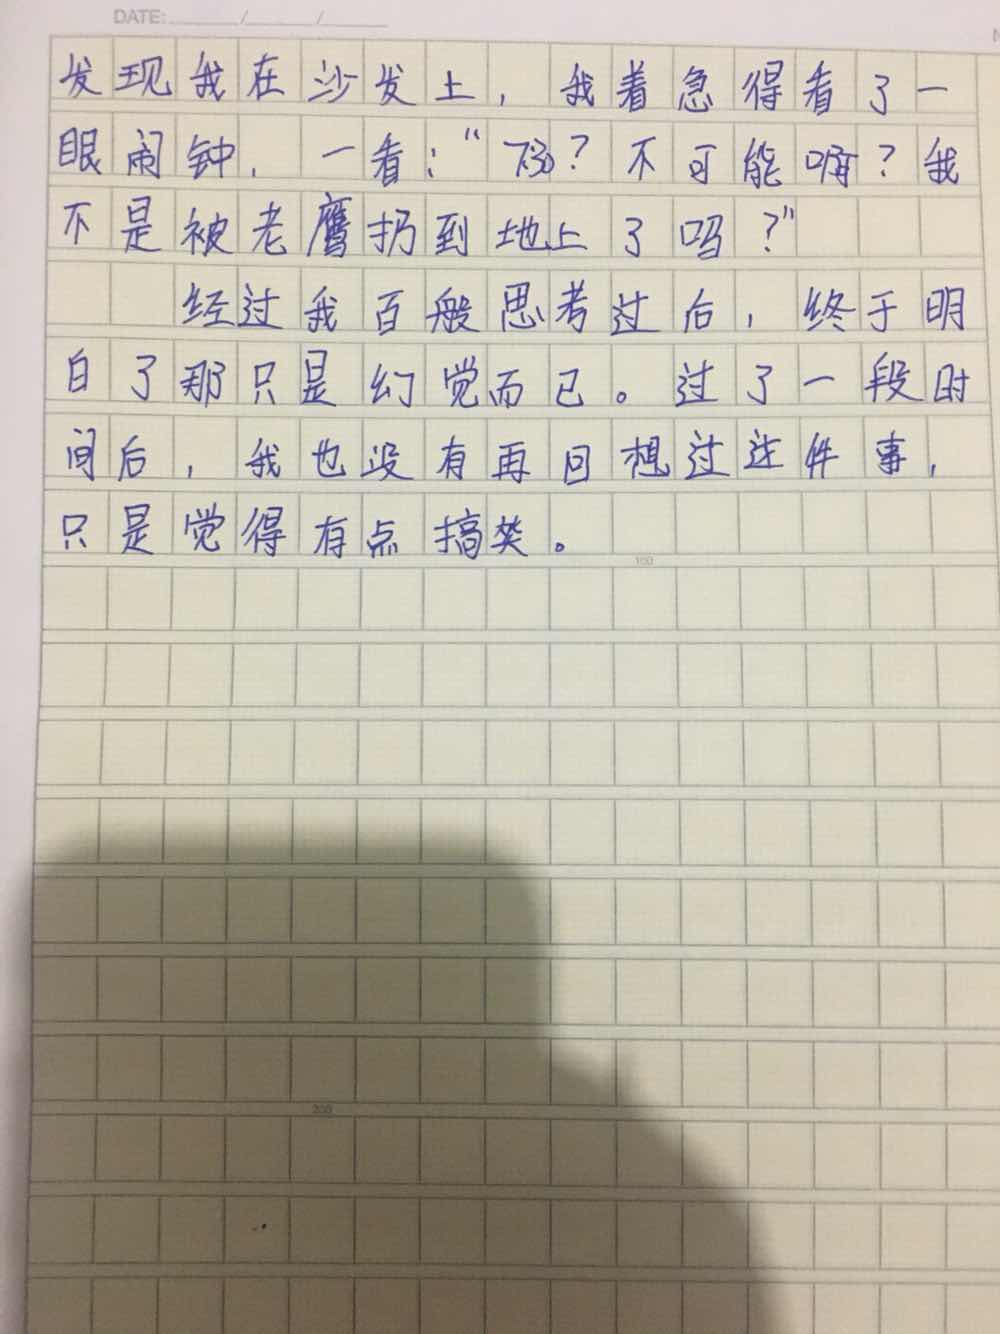 DATE: / /
发现我在沙发上，我着急得看了一
眼闹钟，一看：“7:30？不可能啊？我
不是被老鹰扔到地上了吗？”
经过我百般思考过后，终于明
白了那只是幻觉而已。过了一段时
间后，我也没有再回想过这件事，
只是觉得有点搞笑。
100
200